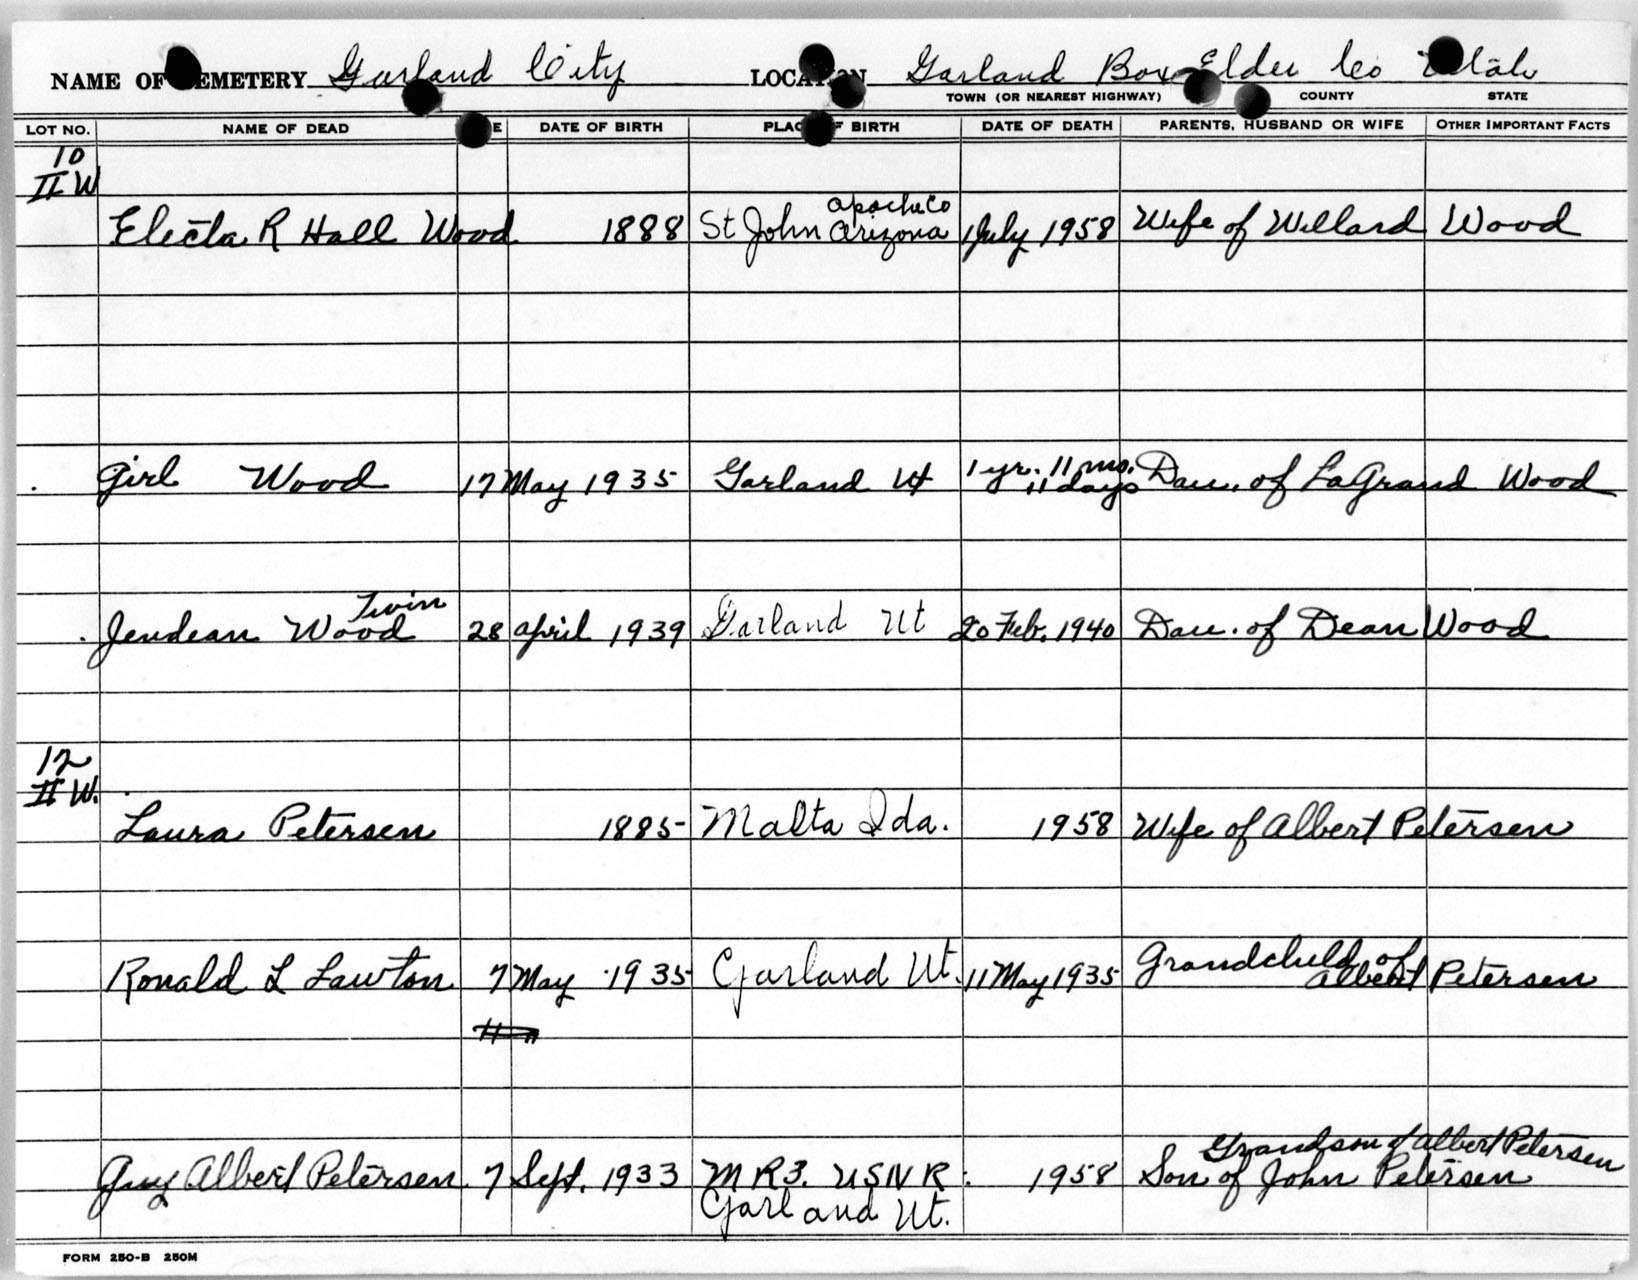 NAME OF CEMETERY Garland City LOCATION Garland Box Elder Co Utah
TOWN (OR NEAREST HIGHWAY) COUNTY STATE
LOT NO. NAME OF DEAD E DATE OF BIRTH PLACE OF BIRTH DATE OF DEATH PARENTS, HUSBAND OR WIFE OTHER IMPORTANT FACTS
10
II W
apache Co
Electa R Hall Wood 1888 St John Arizona 1 July 1958 Wife of Willard Wood
1 yr. 11 mo.
Girl Wood 17 May 1935 Garland Ut 11 days Dau. of LaGrand Wood
Twin
Jendean Wood 28 April 1939 Garland Ut 20 Feb. 1940 Dau. of Dean Wood
12
II W.
Laura Petersen 1885 Malta Ida. 1958 Wife of Albert Petersen
Grandchild of
Ronald L Lawton 7 May 1935 Garland Ut. 11 May 1935 Albert Petersen
Grandson of Albert Petersen
Guy Albert Petersen 7 Sept. 1933 M R 3. USNR. 1958 Son of John Petersen
Garland Ut.
FORM 250-B 250M